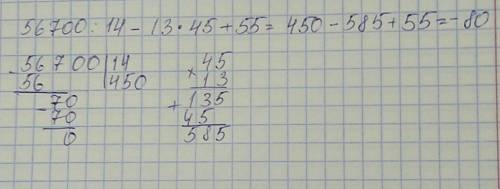 56700 : 14 - 13 · 45 + 55 = 450 - 585 + 55 = -80
- 56700 | 14
56 450
- 70
70
0
× 45
13
+ 135
45
585